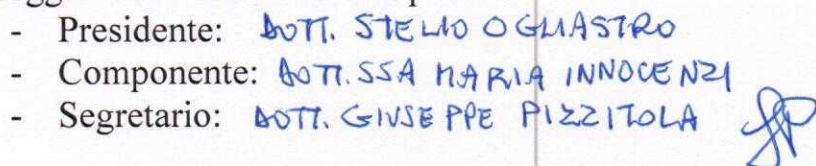 - Presidente: DOTT. STELIO OGLIASTRO
- Componente: DOTT.SSA MARIA INNOCENZI
- Segretario: DOTT. GIUSEPPE PIZZITOLA